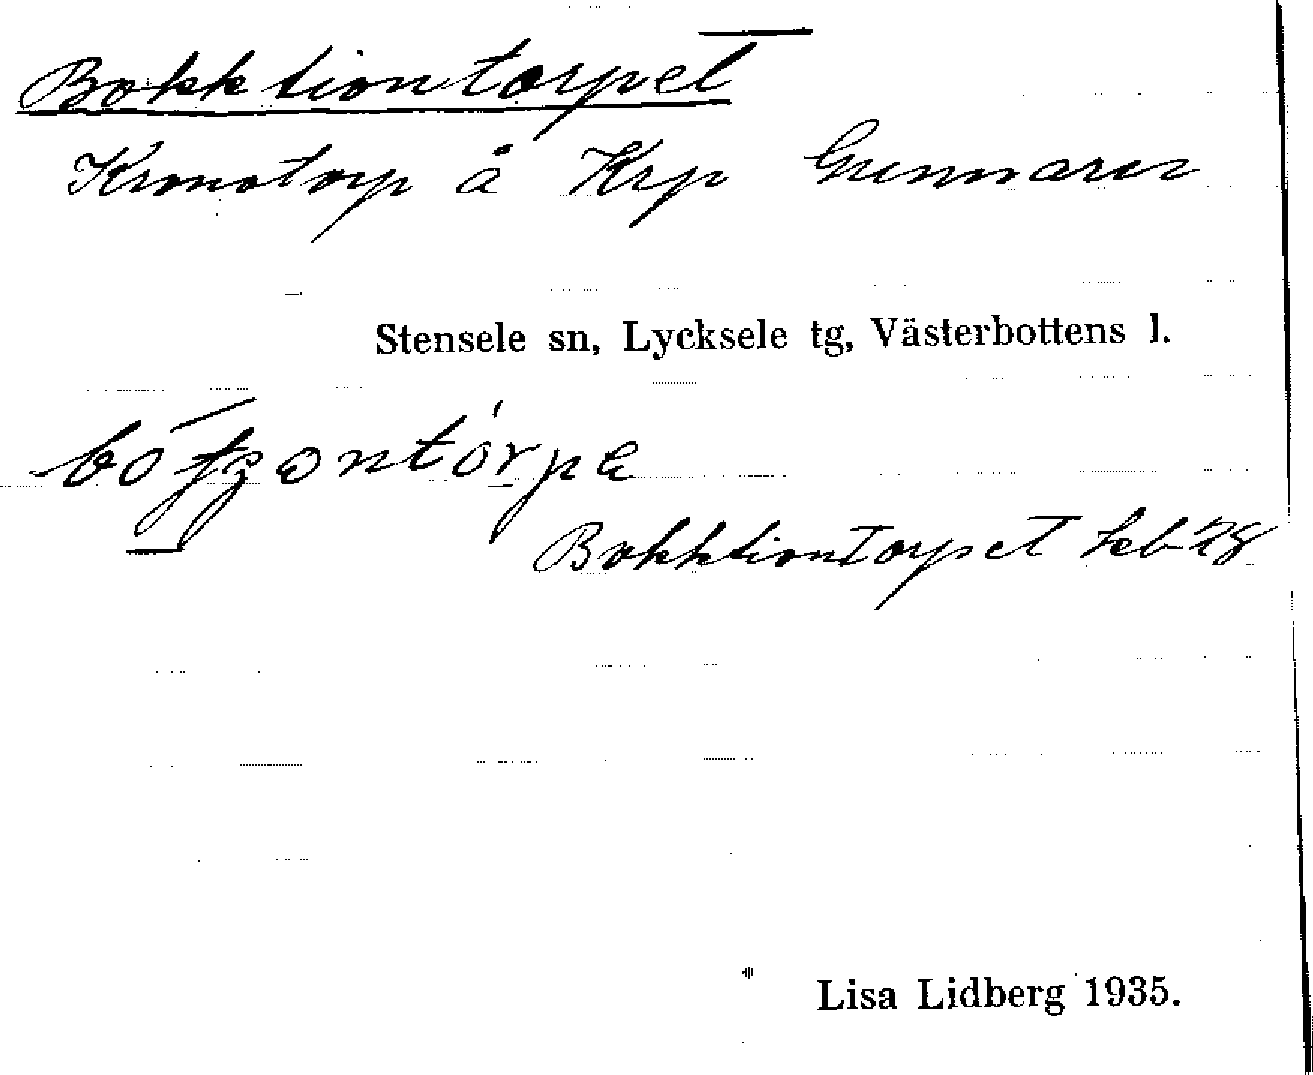 Bokktiontorpet
Kronotorp å Krp Gunnarn
Stensele sn, Lycksele tg, Västerbottens l.
Bokktiontorpet
Lisa Lidberg 1935.